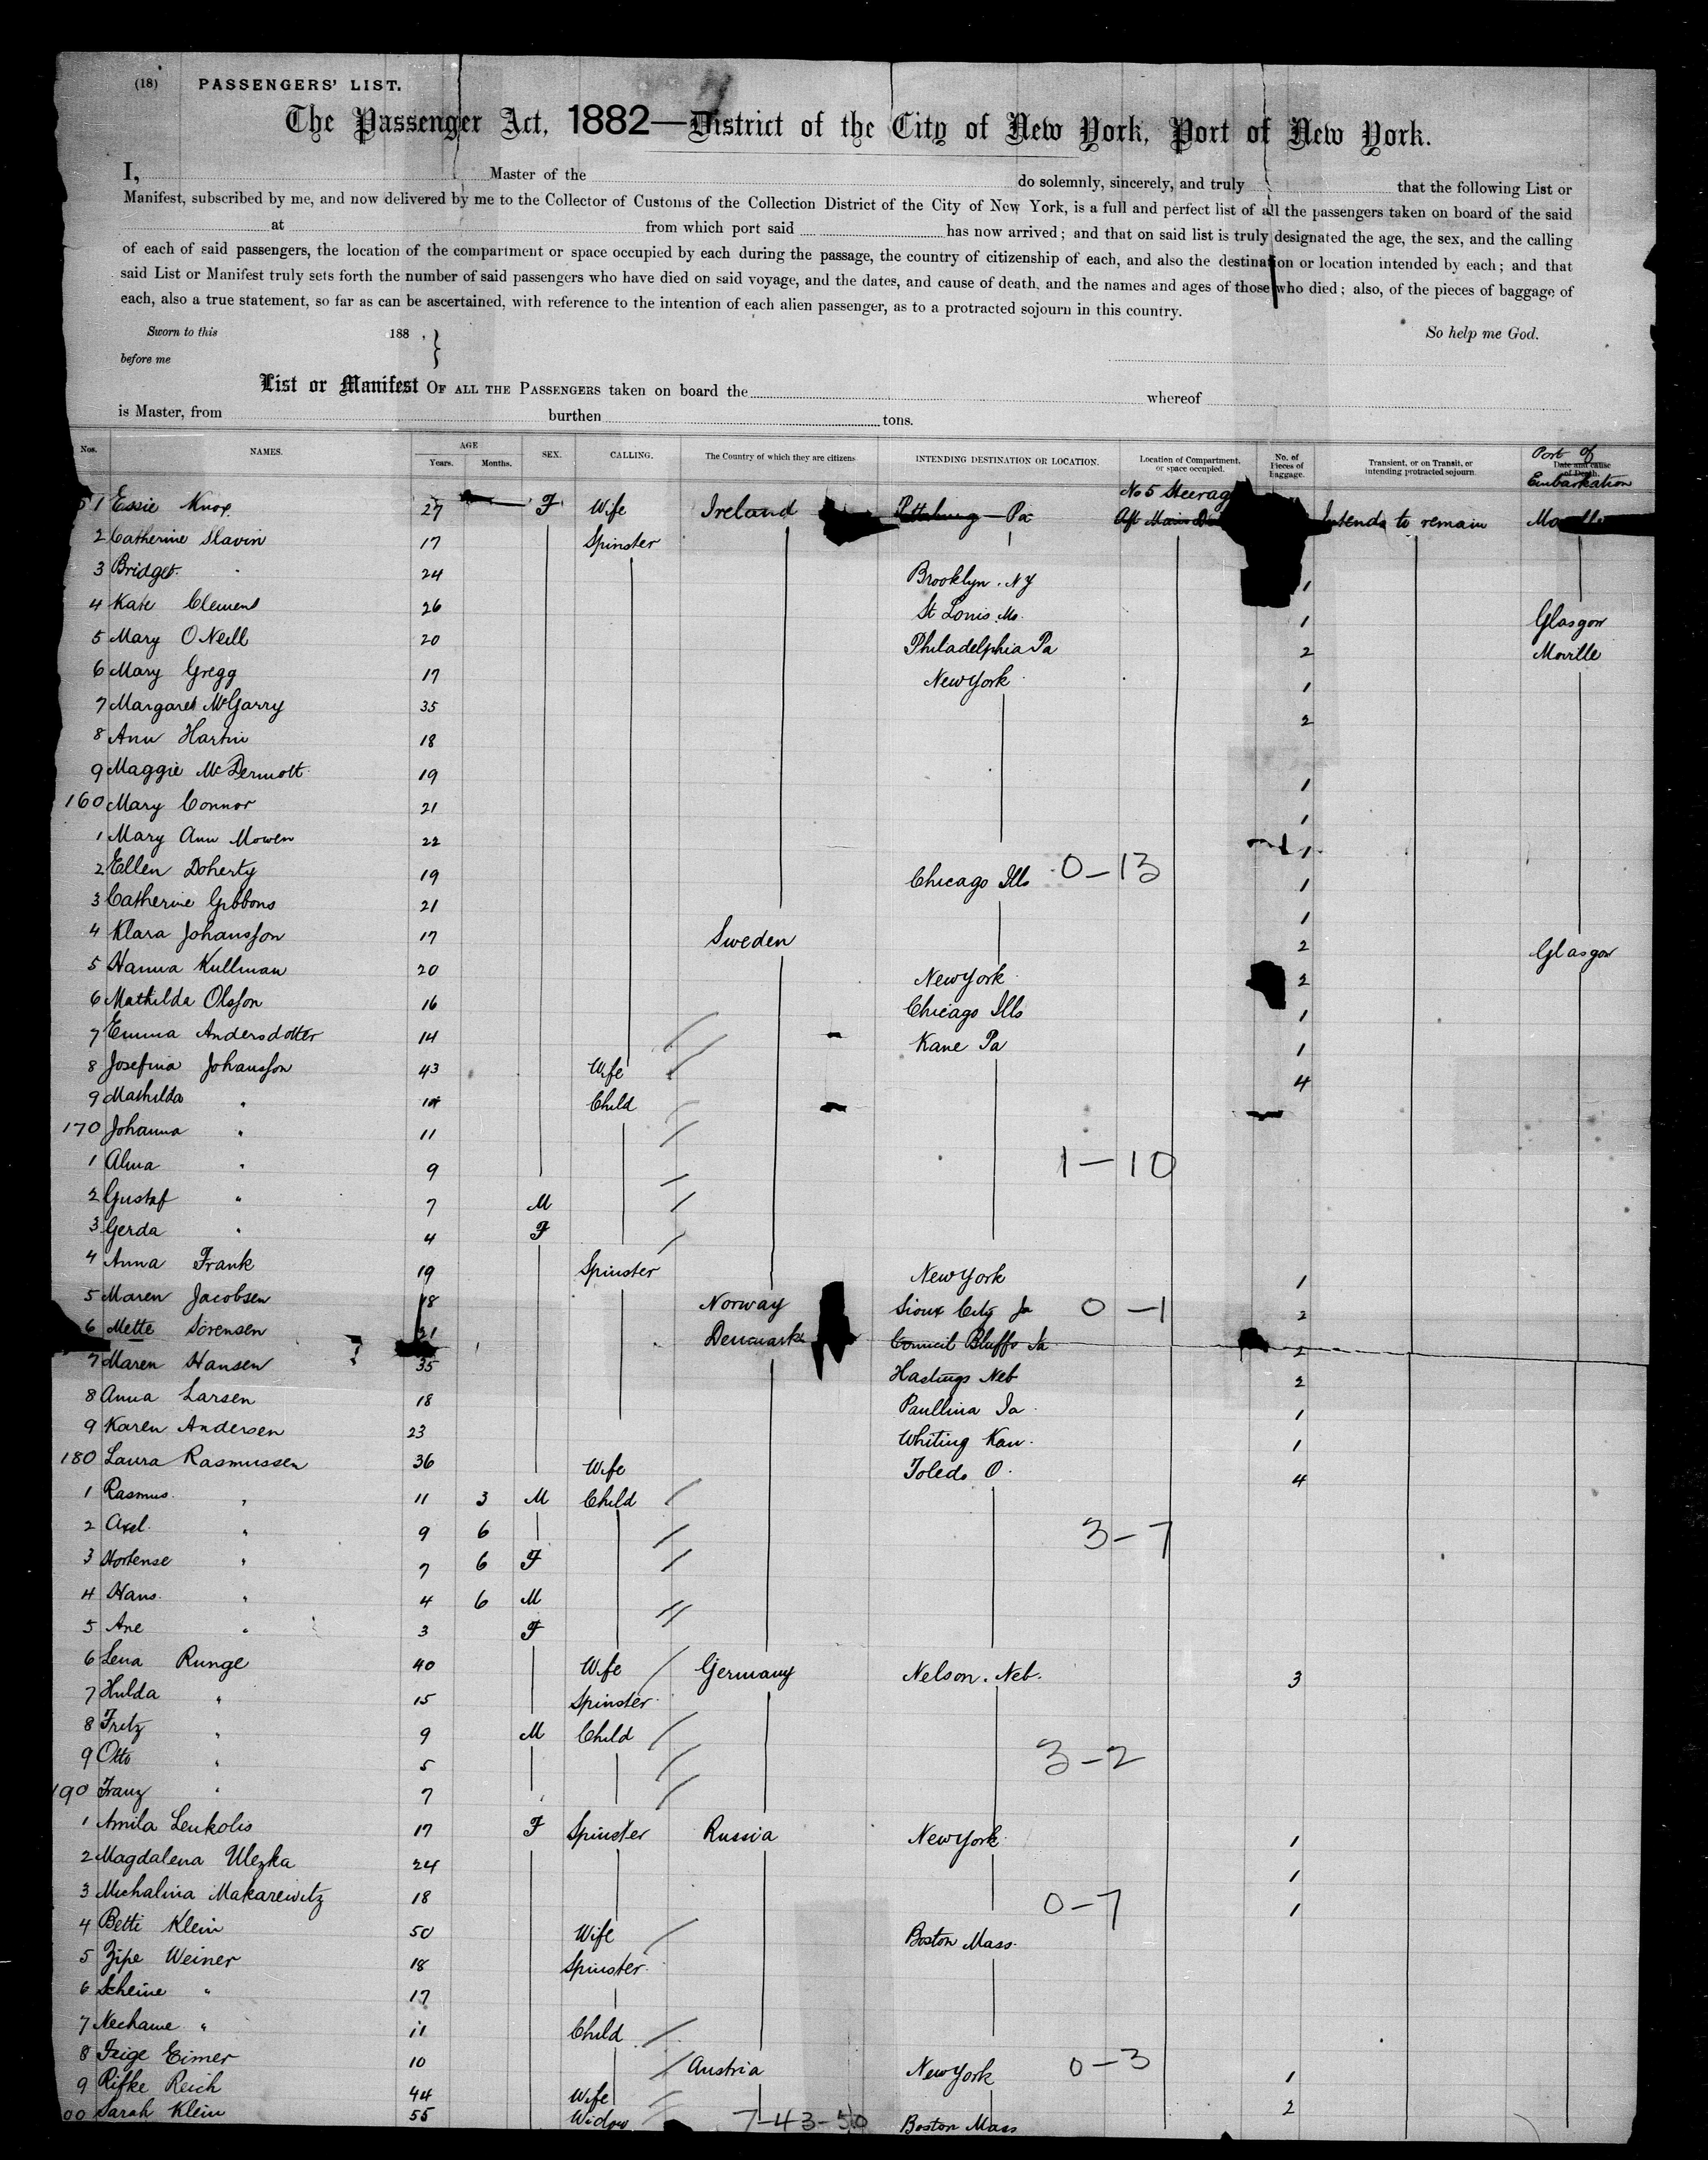 (18) PASSENGERS' LIST.
The Passenger Act, 1882—District of the City of New York, Port of New York.
I, Master of the do solemnly, sincerely, and truly that the following List or
Manifest, subscribed by me, and now delivered by me to the Collector of Customs of the Collection District of the City of New York, is a full and perfect list of all the passengers taken on board of the said
at from which port said has now arrived; and that on said list is truly designated the age, the sex, and the calling
of each of said passengers, the location of the compartment or space occupied by each during the passage, the country of citizenship of each, and also the destination or location intended by each; and that
said List or Manifest truly sets forth the number of said passengers who have died on said voyage, and the dates, and cause of death, and the names and ages of those who died; also, of the pieces of baggage of
each, also a true statement, so far as can be ascertained, with reference to the intention of each alien passenger, as to a protracted sojourn in this country.
Sworn to this 188 , } So help me God.
before me
List or Manifest OF ALL THE PASSENGERS taken on board the whereof
is Master, from burthen tons.
Nos. NAMES. AGE Years. Months. SEX. CALLING. The Country of which they are citizens INTENDING DESTINATION OR LOCATION. Location of Compartment, or space occupied. No. of Pieces of Baggage. Transient, or on Transit, or intending protracted sojourn. Date and cause of Death. Port of Embarkation
No 5 Steerage
51 Essie Knox 27 F Wife Ireland Pittsburg Pa Aft Main Intends to remain Moville
2 Catherine Slavin 17 Spinster
3 Bridget " 24 Brooklyn. NY 1
4 Kate Clement 26 St Louis. Mo. 1 Glasgow
5 Mary ONeill 20 Philadelphia Pa 2 Moville
6 Mary Gregg 17 New York 1
7 Margaret McGarry 35 2
8 Ann Hartin 18
9 Maggie McDermott 19 1
160 Mary Connor 21 1
1 Mary Ann Mowen 22 1
2 Ellen Doherty 19 Chicago Ills 0-13 1
3 Catherine Gibbons 21 1
4 Klara Johansson 17 Sweden 2 Glasgow
5 Hanna Kullman 20 New York 2
6 Mathilda Olsson 16 Chicago Ills 1
7 Emma Andersdotter 14 Kane Pa 1
8 Josefina Johansson 43 Wife 4
9 Mathilda " Child
170 Johanna " 11
1 Alma " 9 1-10
2 Gustaf " 7 M
3 Gerda " 4 F
4 Anna Frank 19 Spinster New York 1
5 Maren Jacobsen 18 Norway Sioux City Ja 0-1 2
6 Mette Sorensen 21 Denmark Council Bluffs Ia 2
7 Maren Hansen 35 Hastings Neb 2
8 Anna Larsen 18 Paullina Ia 1
9 Karen Andersen 23 Whiting Kan. 1
180 Laura Rasmussen 36 Wife Toledo O. 4
1 Rasmus " 11 3 M Child
2 Axel. " 9 6 3-7
3 Hortense " 7 6 F
4 Hans. " 4 6 M
5 Ane " 3 F
6 Lena Runge 40 Wife Germany Nelson. Neb. 3
7 Hulda " 15 Spinster
8 Fritz " 9 M Child
9 Otto " 5 3-2
190 Franz " 7
1 Amila Leukolis 17 F Spinster Russia New York 1
2 Magdalena Ulezka 24 1
3 Michalina Makarewitz 18 0-7 1
4 Betti Klein 50 Wife Boston Mass.
5 Zipe Weiner 18 Spinster
6 Scheine " 17
7 Nechame " 11 Child
8 Feige Eimer 10 Austria New York 0-3 1
9 Rifke Reich 44 Wife 2
00 Sarah Klein 55 Widow 7-43-50 Boston Mass